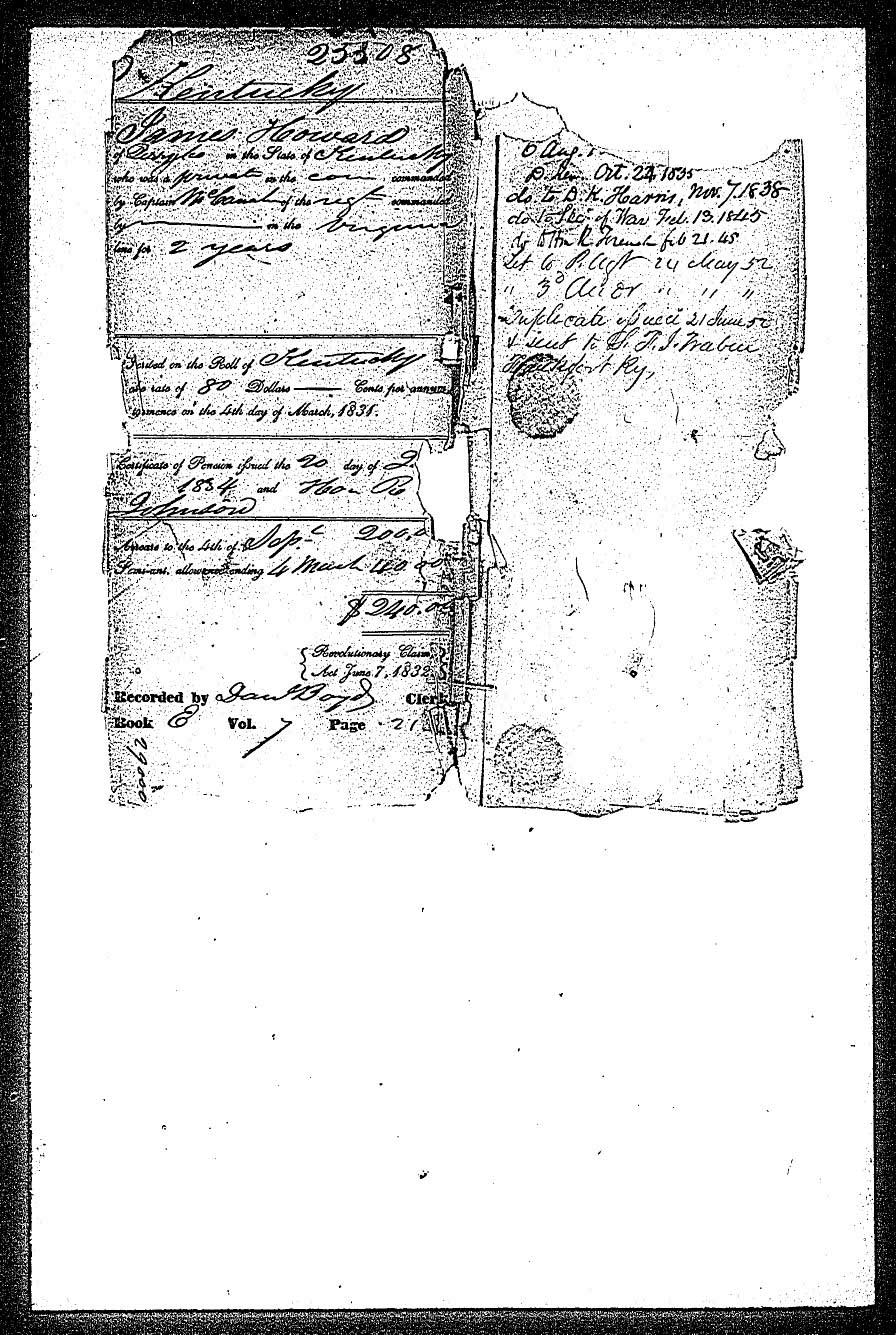 23308
Kentucky
James Howard
of in the State of Kentucky
who was a private in the com commanded
by Captain of the regt commanded
by in the Virginia
line for 2 years
Inscribed on the Roll of Kentucky
rate of 80 Dollars — Cents per annum,
commence on the 4th day of March, 1831.
Certificate of Pension issued the 20 day of
1834 and Hon R
Johnson
Arrears to the 4th of Sept 200.
Semi-anl. allowance ending 4 March 40.00
$240.00
Revolutionary Claim,
Act June 7, 1832.
Recorded by Danl Boyd Clerk
Book E Vol. 7 Page 21
29000
6 Aug.
Oct. 24, 1835
do to D. K. Harris, Nov. 7. 1838
do to Sec. of War Feb. 13. 1845
do to Hon R French feb 21. 45
Let to P. Agt 24 May 52
" 3d Audr " " "
Duplicate issued 21 June 52
& sent to
Frankfort Ky,